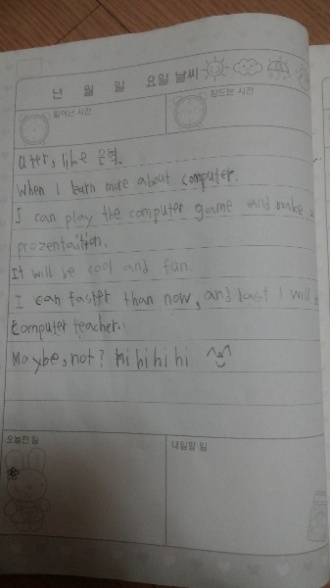 년 월 일 요일 날씨
일어난 시간
잠드는 시간
uter, like 은혁.
When I learn more about computer.
I can play the computer game and make a
prozentaition.
It will be cool and fun.
I can faster than now, and last I will
Computer teacher.
Maybe, not? hi hi hi hi
오늘한 일
내일할 일